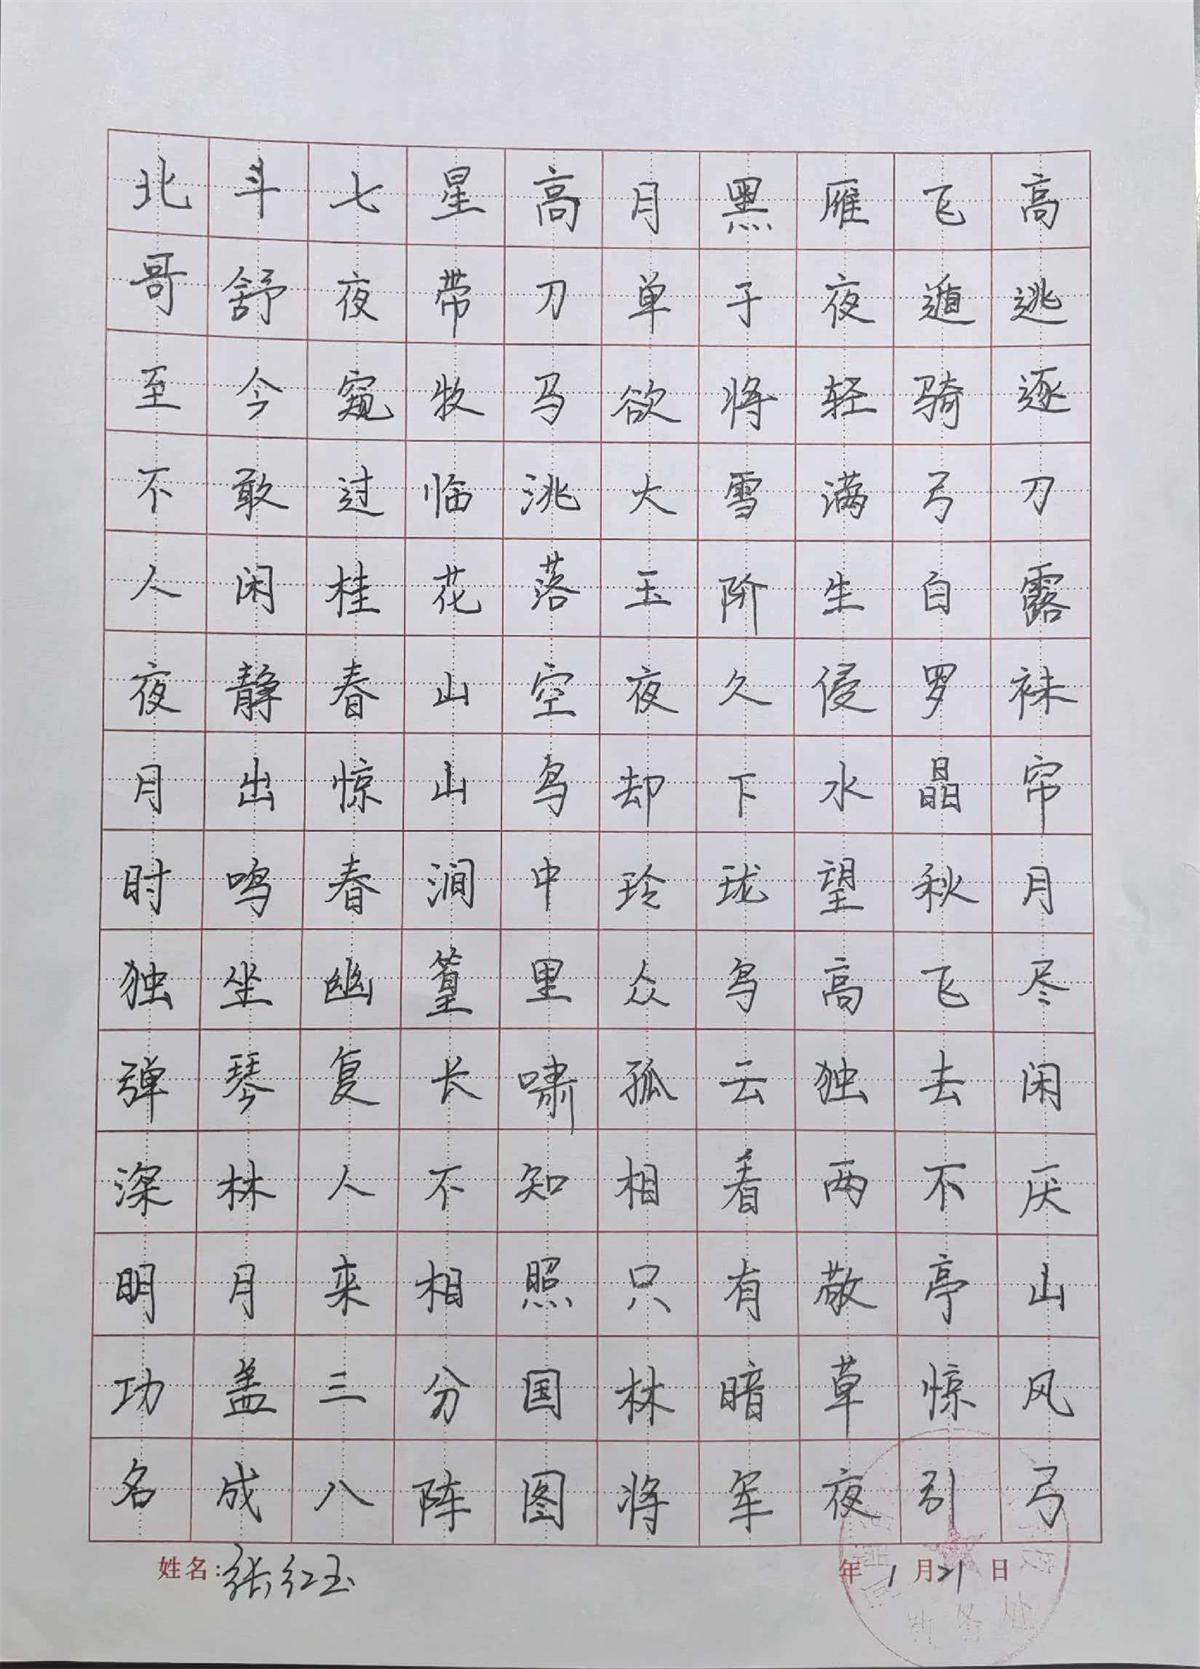 北斗七星高月黑雁飞高
哥舒夜带刀单于夜遁逃
至今窥牧马欲将轻骑逐
不敢过临洮大雪满弓刀
人闲桂花落玉阶生白露
夜静春山空夜久侵罗袜
月出惊山鸟却下水晶帘
时鸣春涧中玲珑望秋月
独坐幽篁里众鸟高飞尽
弹琴复长啸孤云独去闲
深林人不知相看两不厌
明月来相照只有敬亭山
功盖三分国林暗草惊风
名成八阵图将军夜引弓
姓名:张红玉 年1月21日